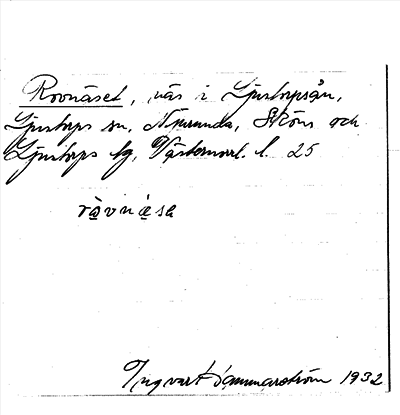 Rovnäset, näs i Ljustorpsån,
Ljustorps sn, Njurunda, Sköns och
Ljustorps tg, Västernorrl. l. 25
Ingvart Hammarström 1932